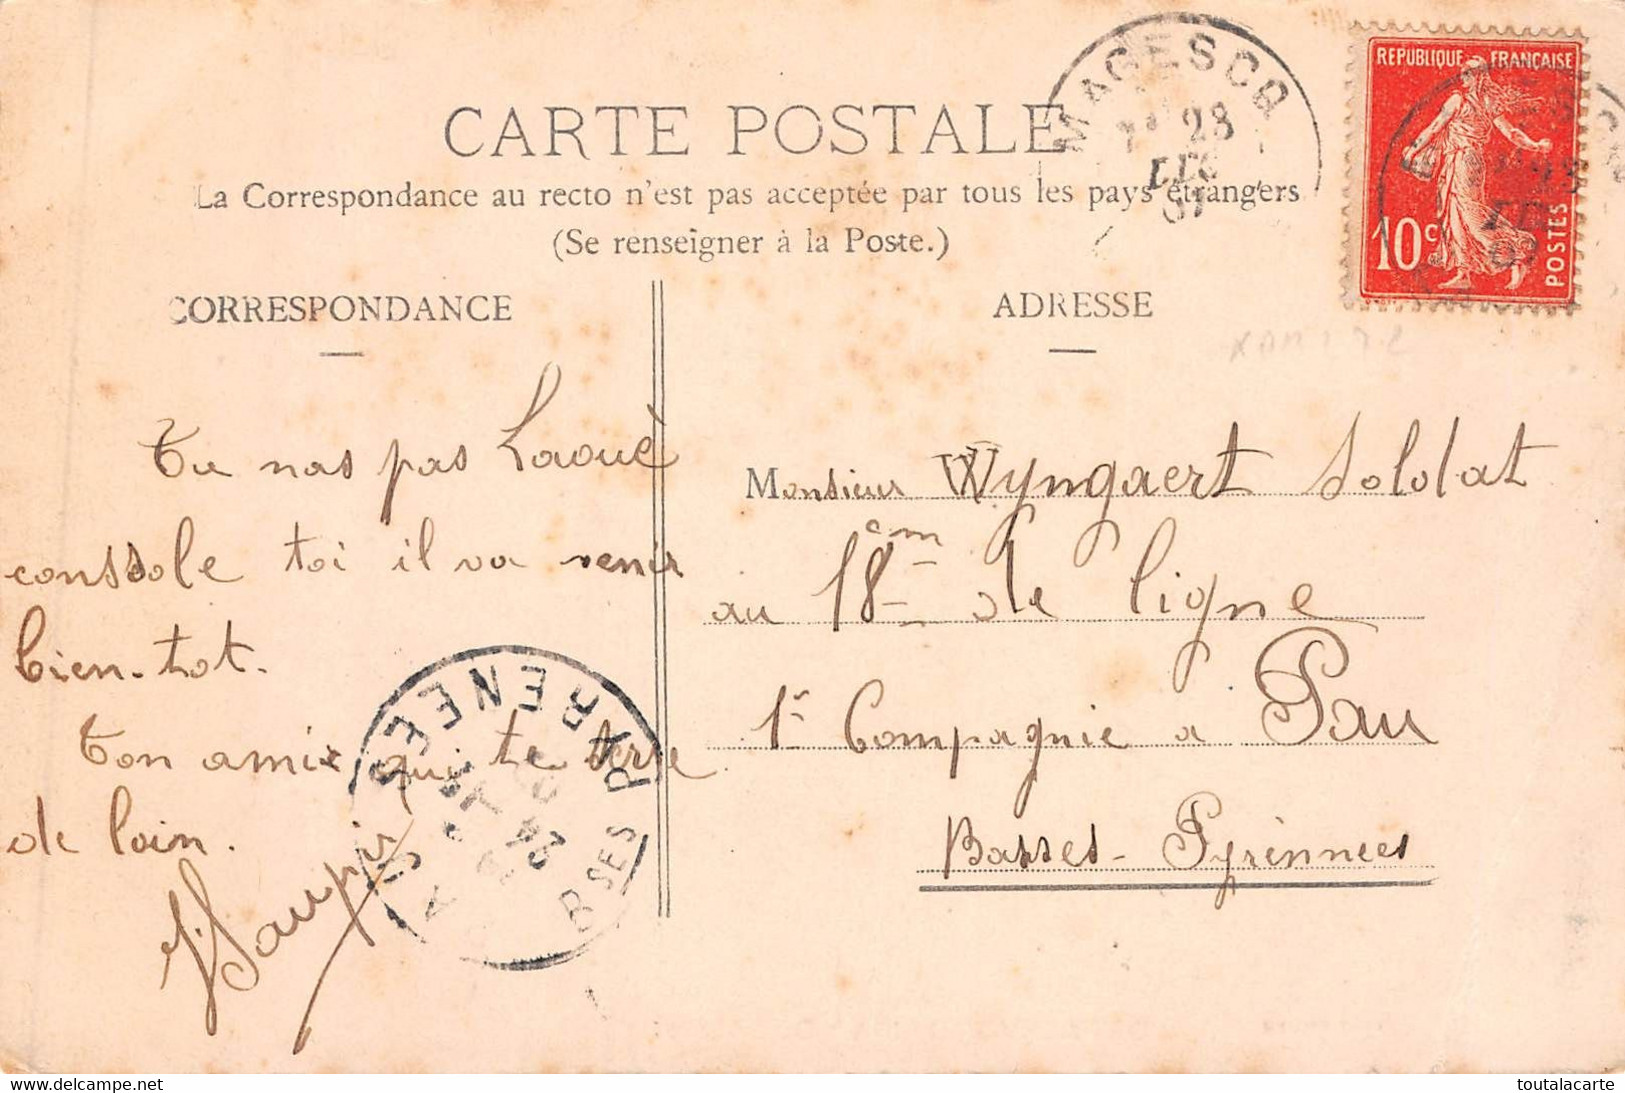 CARTE POSTALE
La Correspondance au recto n'est pas acceptée par tous les pays étrangers
(Se renseigner à la Poste.)
CORRESPONDANCE
ADRESSE
REPUBLIQUE FRANÇAISE
10c
POSTES
MAGESCQ
28
DEC
07
Tu nas pas Laouè
conssole toi il va venir
bien-tot.
Ton amie qui te serre
de loin.
Monsieur Wyngaert Soldat
au 18em de ligne
1r Compagnie a Pau
Basses-Pyrénnées
BSES PYRENEES
24
www.delcampe.net
toutalacarte